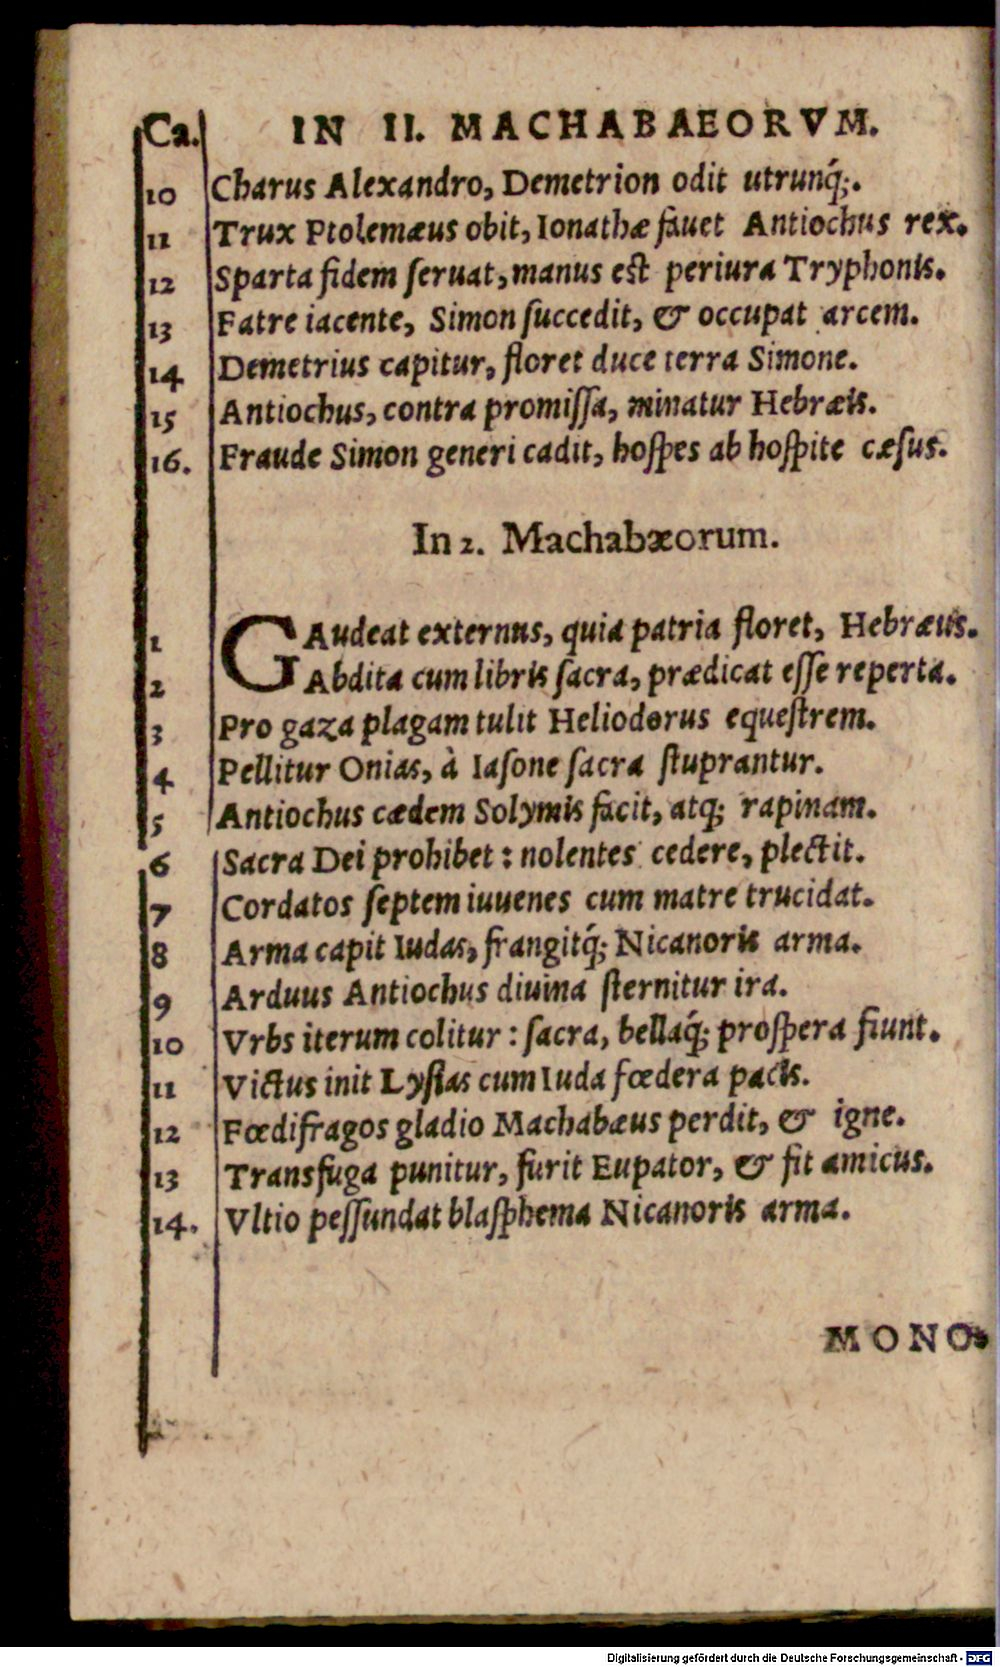 Ca. IN II. MACHABAEORVM.
10 Charus Alexandro, Demetrion odit utrunq́;.
11 Trux Ptolemæus obit, Ionathæ fauet Antiochus rex.
12 Sparta fidem ſeruat, manus est periura Tryphonis.
13 Fatre iacente, Simon ſuccedit, & occupat arcem.
14 Demetrius capitur, floret duce terra Simone.
15 Antiochus, contra promiſſa, minatur Hebræis.
16. Fraude Simon generi cadit, hoſpes ab hoſpite cæſus.
In 2. Machabæorum.
1 GAudeat externus, quia patria floret, Hebræus.
2 Abdita cum libris ſacra, prædicat eſſe reperta.
3 Pro gaza plagam tulit Heliodorus equeſtrem.
4 Pellitur Onias, à Iaſone ſacra ſtuprantur.
5 Antiochus cædem Solymis facit, atq; rapinam.
6 Sacra Dei prohibet : nolentes cedere, plectit.
7 Cordatos ſeptem iuuenes cum matre trucidat.
8 Arma capit Iudas, frangitq́; Nicanoris arma.
9 Arduus Antiochus diuina ſternitur ira.
10 Vrbs iterum colitur : ſacra, bellaq́; proſpera fiunt.
11 Victus init Lyſias cum Iuda fœdera pacis.
12 Fœdifragos gladio Machabæus perdit, & igne.
13 Transfuga punitur, furit Eupator, & fit amicus.
14. Vltio peſſundat blaſphema Nicanoris arma.
MONO-
Digitalisierung gefördert durch die Deutsche Forschungsgemeinschaft - DFG